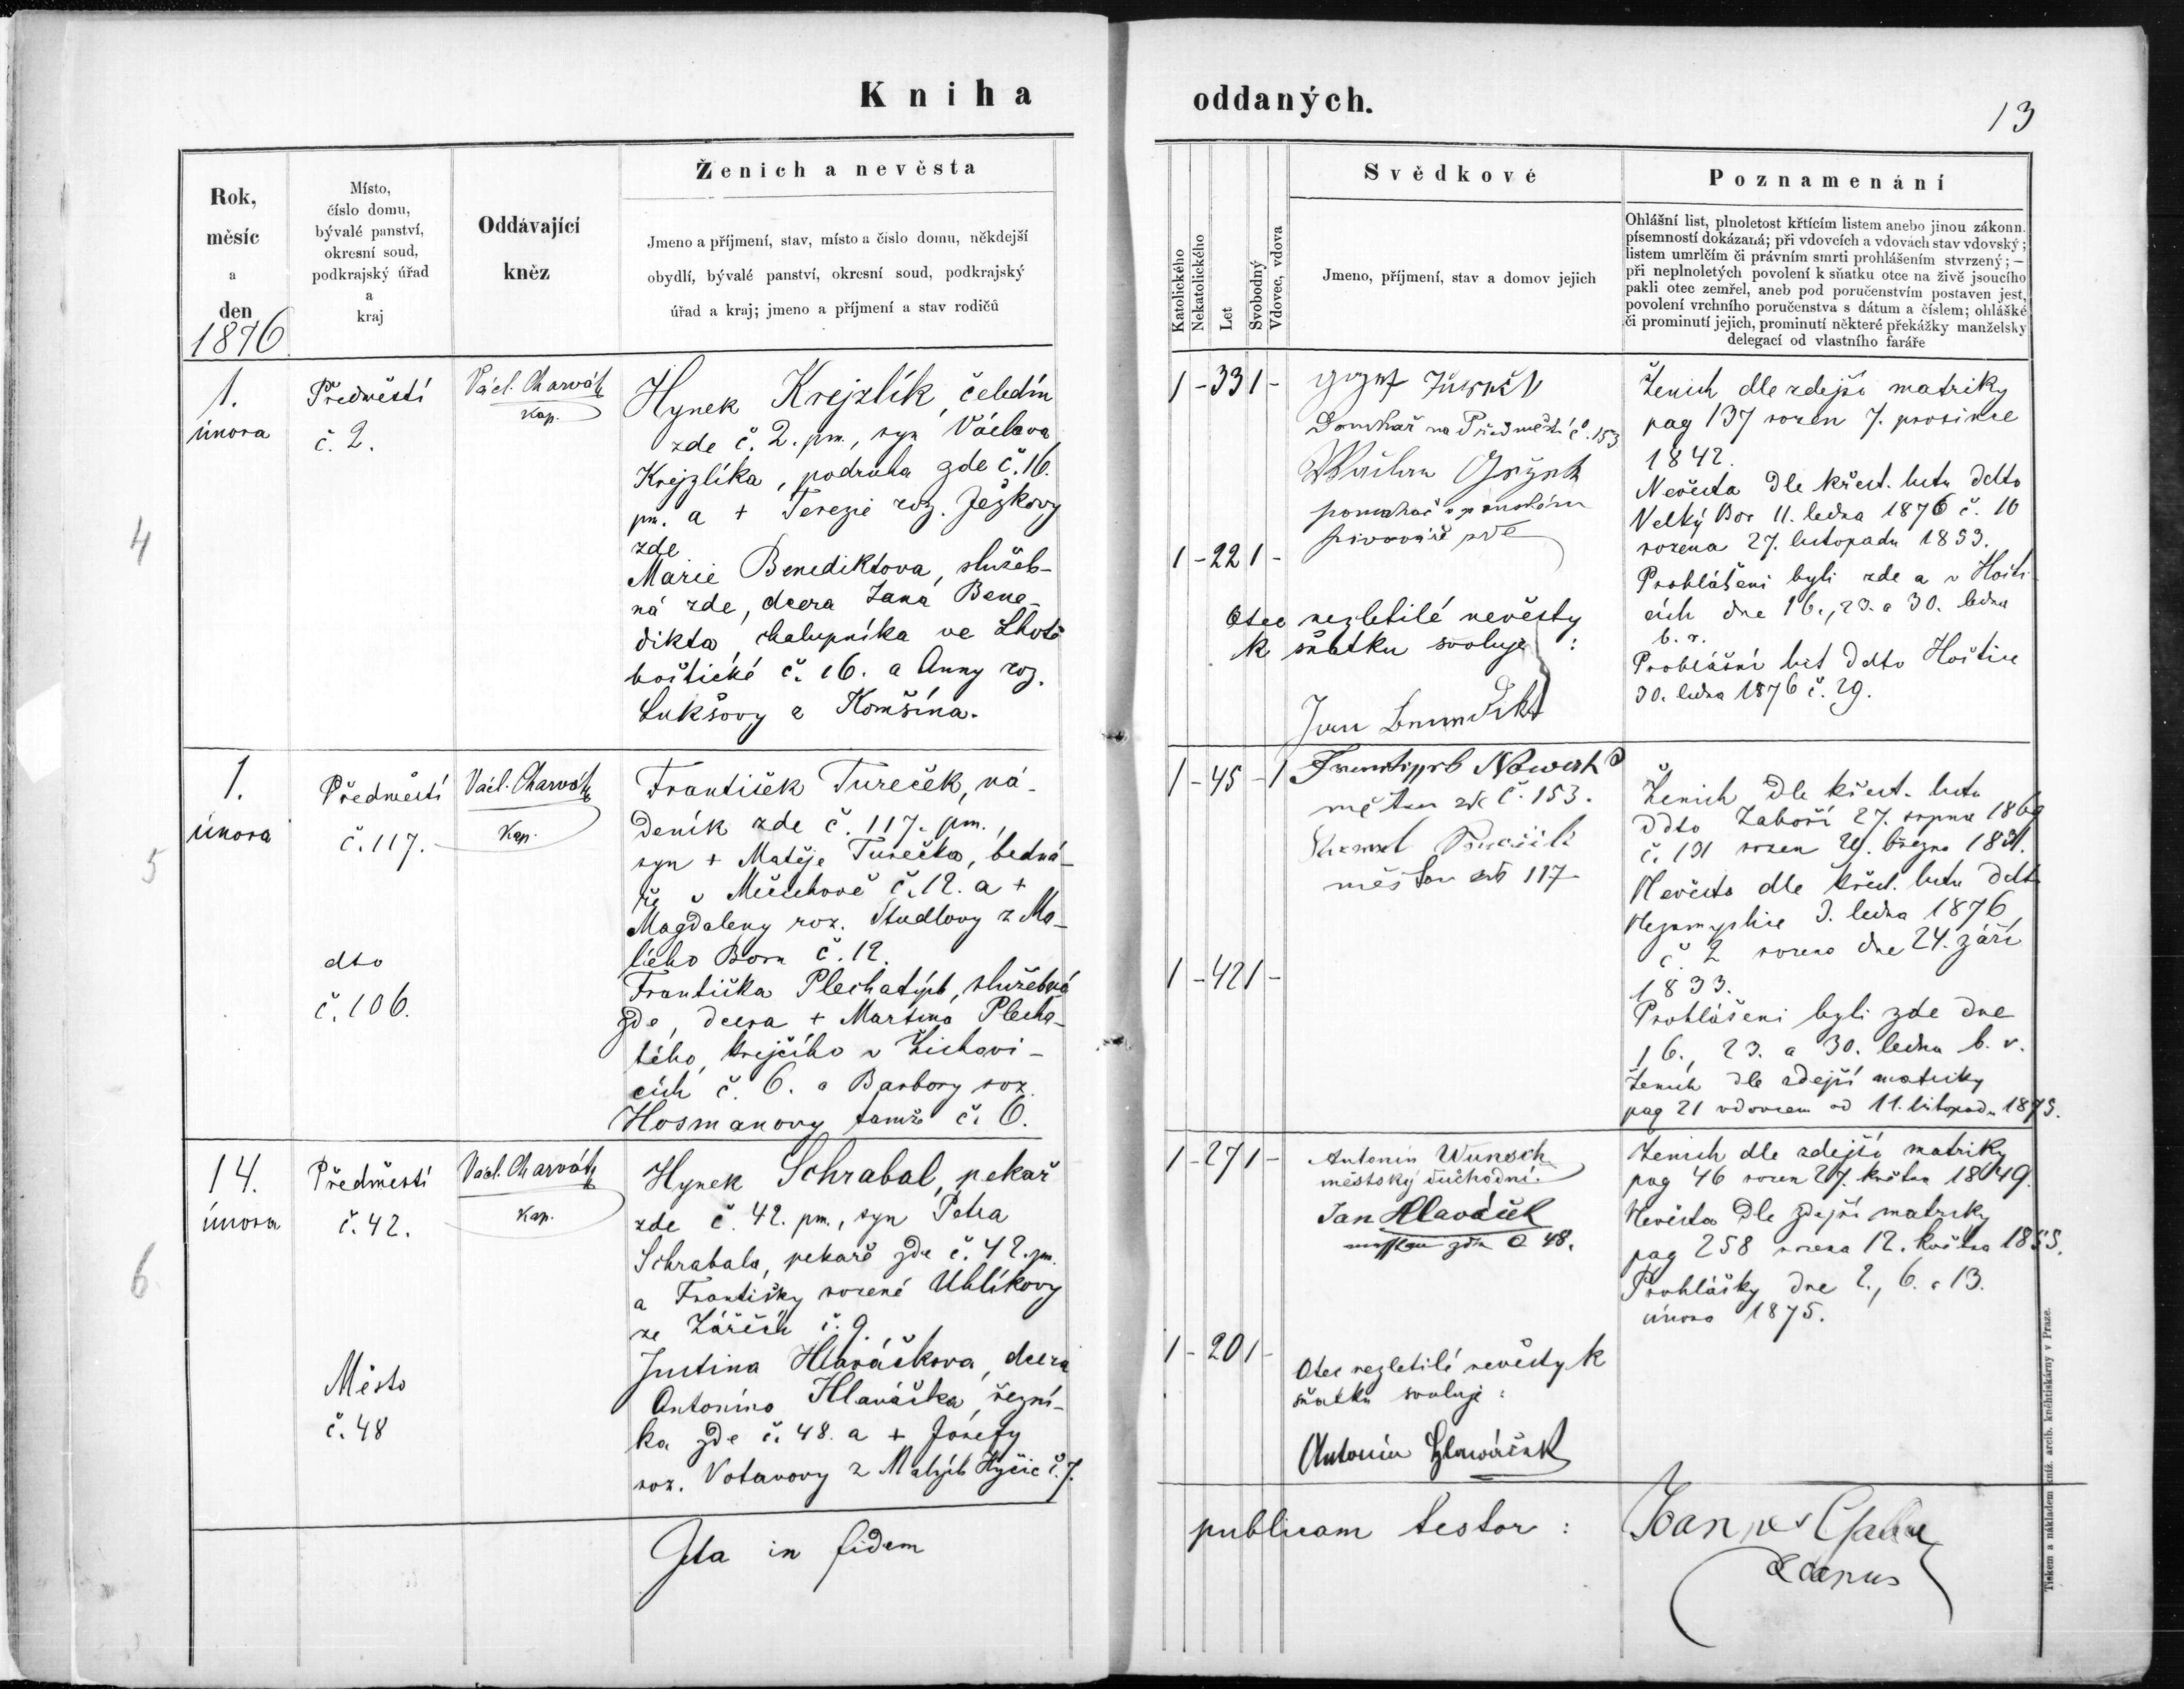 Kniha
oddaných.
13
Rok,
měsíc
a
den
1876
Místo,
číslo domu,
bývalé panství,
okresní soud,
podkrajský úřad
a
kraj
Oddávající
kněz
Ženich a nevěsta
Jmeno a příjmení, stav, místo a číslo domu, někdejší
obydlí, bývalé panství, okresní soud, podkrajský
úřad a kraj; jmeno a příjmení a stav rodičů
Katolického
Nekatolického
Let
Svobodný
Vdovec, vdova
Svědkové
Jmeno, příjmení, stav a domov jejich
Poznamenání
Ohlášní list, plnoletost křtícím listem anebo jinou zákonn.
písemností dokázaná; při vdovcích a vdovách stav vdovský;
listem umrlčím či právním smrti prohlášením stvrzený; —
při neplnoletých povolení k sňatku otce na živě jsoucího
pakli otec zemřel, aneb pod poručenstvím postaven jest,
povolení vrchního poručenstva s dátum a číslem; ohlášké
či prominutí jejich, prominutí některé překážky manželsky
delegací od vlastního faráře
4
1.
února
Předměstí
č. 2.
Václ. Charvát
kap.
Hynek Krejzlík, čeledín
zde č. 2. pm., syn Václava
Krejzlíka, podruha zde č. 16.
pm. a + Terezie roz. Ježkovy
zde
Marie Benediktova, služeb-
ná zde, dcera Jana Bene-
dikta, chalupníka ve Lhotě
hoštické č. 16. a Anny roz.
Lukšovy z Komšína.
1 - 33 1 -
Domkář na Předměstí č. 153
1 - 22 1 -
Otec nezletilé nevěsty
k sňatku svoluje:
Jan Benedikt
Ženich dle zdejší matriky
pag 137 rozen 7. prosince
1842.
Nevěsta dle křest. listu ddto
Velký Bor 11. ledna 1876 č. 10
rozena 27. listopadu 1853.
Prohlášeni byli zde a v Hošti-
cích dne 16., 23. a 30. ledna
b. r.
Prohlášní list ddto Hoštice
30. ledna 1876 č. 29.
5
1.
února
Předměstí
č. 117.
dto
č. 106.
Václ. Charvát
Kap.
František Tureček, ná-
deník zde č. 117. pm.,
syn + Matěje Turečka, bedná-
ře v Měčichově č. 12. a +
Magdaleny roz. Študlovy z Ma-
lého Boru č. 12.
Františka Plechatých, služebná
zde, dcera + Martina Plecha-
tého, krejčího v Žichovi-
cích č. 6. a Barbory roz.
Hosmanovy tamže č. 6.
1 - 45 - 1
měšťan zde č. 153.
měšťan zde 117
1 - 42 1 -
Ženich dle křest. listu
ddto Záboří 27. srpna 1869
č. 131 rozen 29. března 1831.
Nevěsta dle křest. listu ddto
Nezamyslice 3. ledna 1876,
č. 2 rozena dne 24. září
1833.
Prohlášeni byli zde dne
16., 23. a 30. ledna b. r.
Ženich dle zdejší matriky
pag 21 vdovcem od 11. listopadu 1875.
6
14.
února
Předměstí
č. 42.
Město
č. 48
Václ. Charvát
Kap.
Hynek Schrabal, pekař
zde č. 42. pm., syn Petra
Schrabala, pekaře zde č. 42. pm.
a Františky rozené Uhlíkovy
ze Zářečí č. 9.
Justina Hlaváčkova, dcera
Antonína Hlaváčka, řezní-
ka zde č. 48. a + Josefy
roz. Votavovy z Malých Hyčic č. 7.
1 - 27 1 -
Antonín Wunsch
městský důchodní.
Jan Hlaváček
48.
1 - 20 1 -
Otec nezletilé nevěsty k
sňatku svoluje:
Antonín Hlawáček
Ženich dle zdejší matriky
pag 46 rozen 27. května 1849.
Nevěsta dle zdejší matriky
pag 258 rozena 12. května 1855.
Prohlášky dne 2., 6. a 13.
února 1875.
Ita in fidem
publicam testor:
Tiskem a nákladem kníž. arcib. kněhtiskárny v Praze.